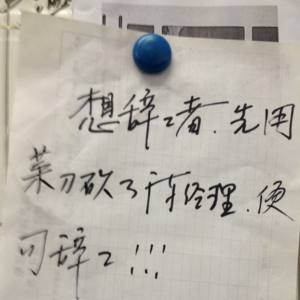 想辞工者.先用
菜刀砍了车经理.便
可辞工!!!